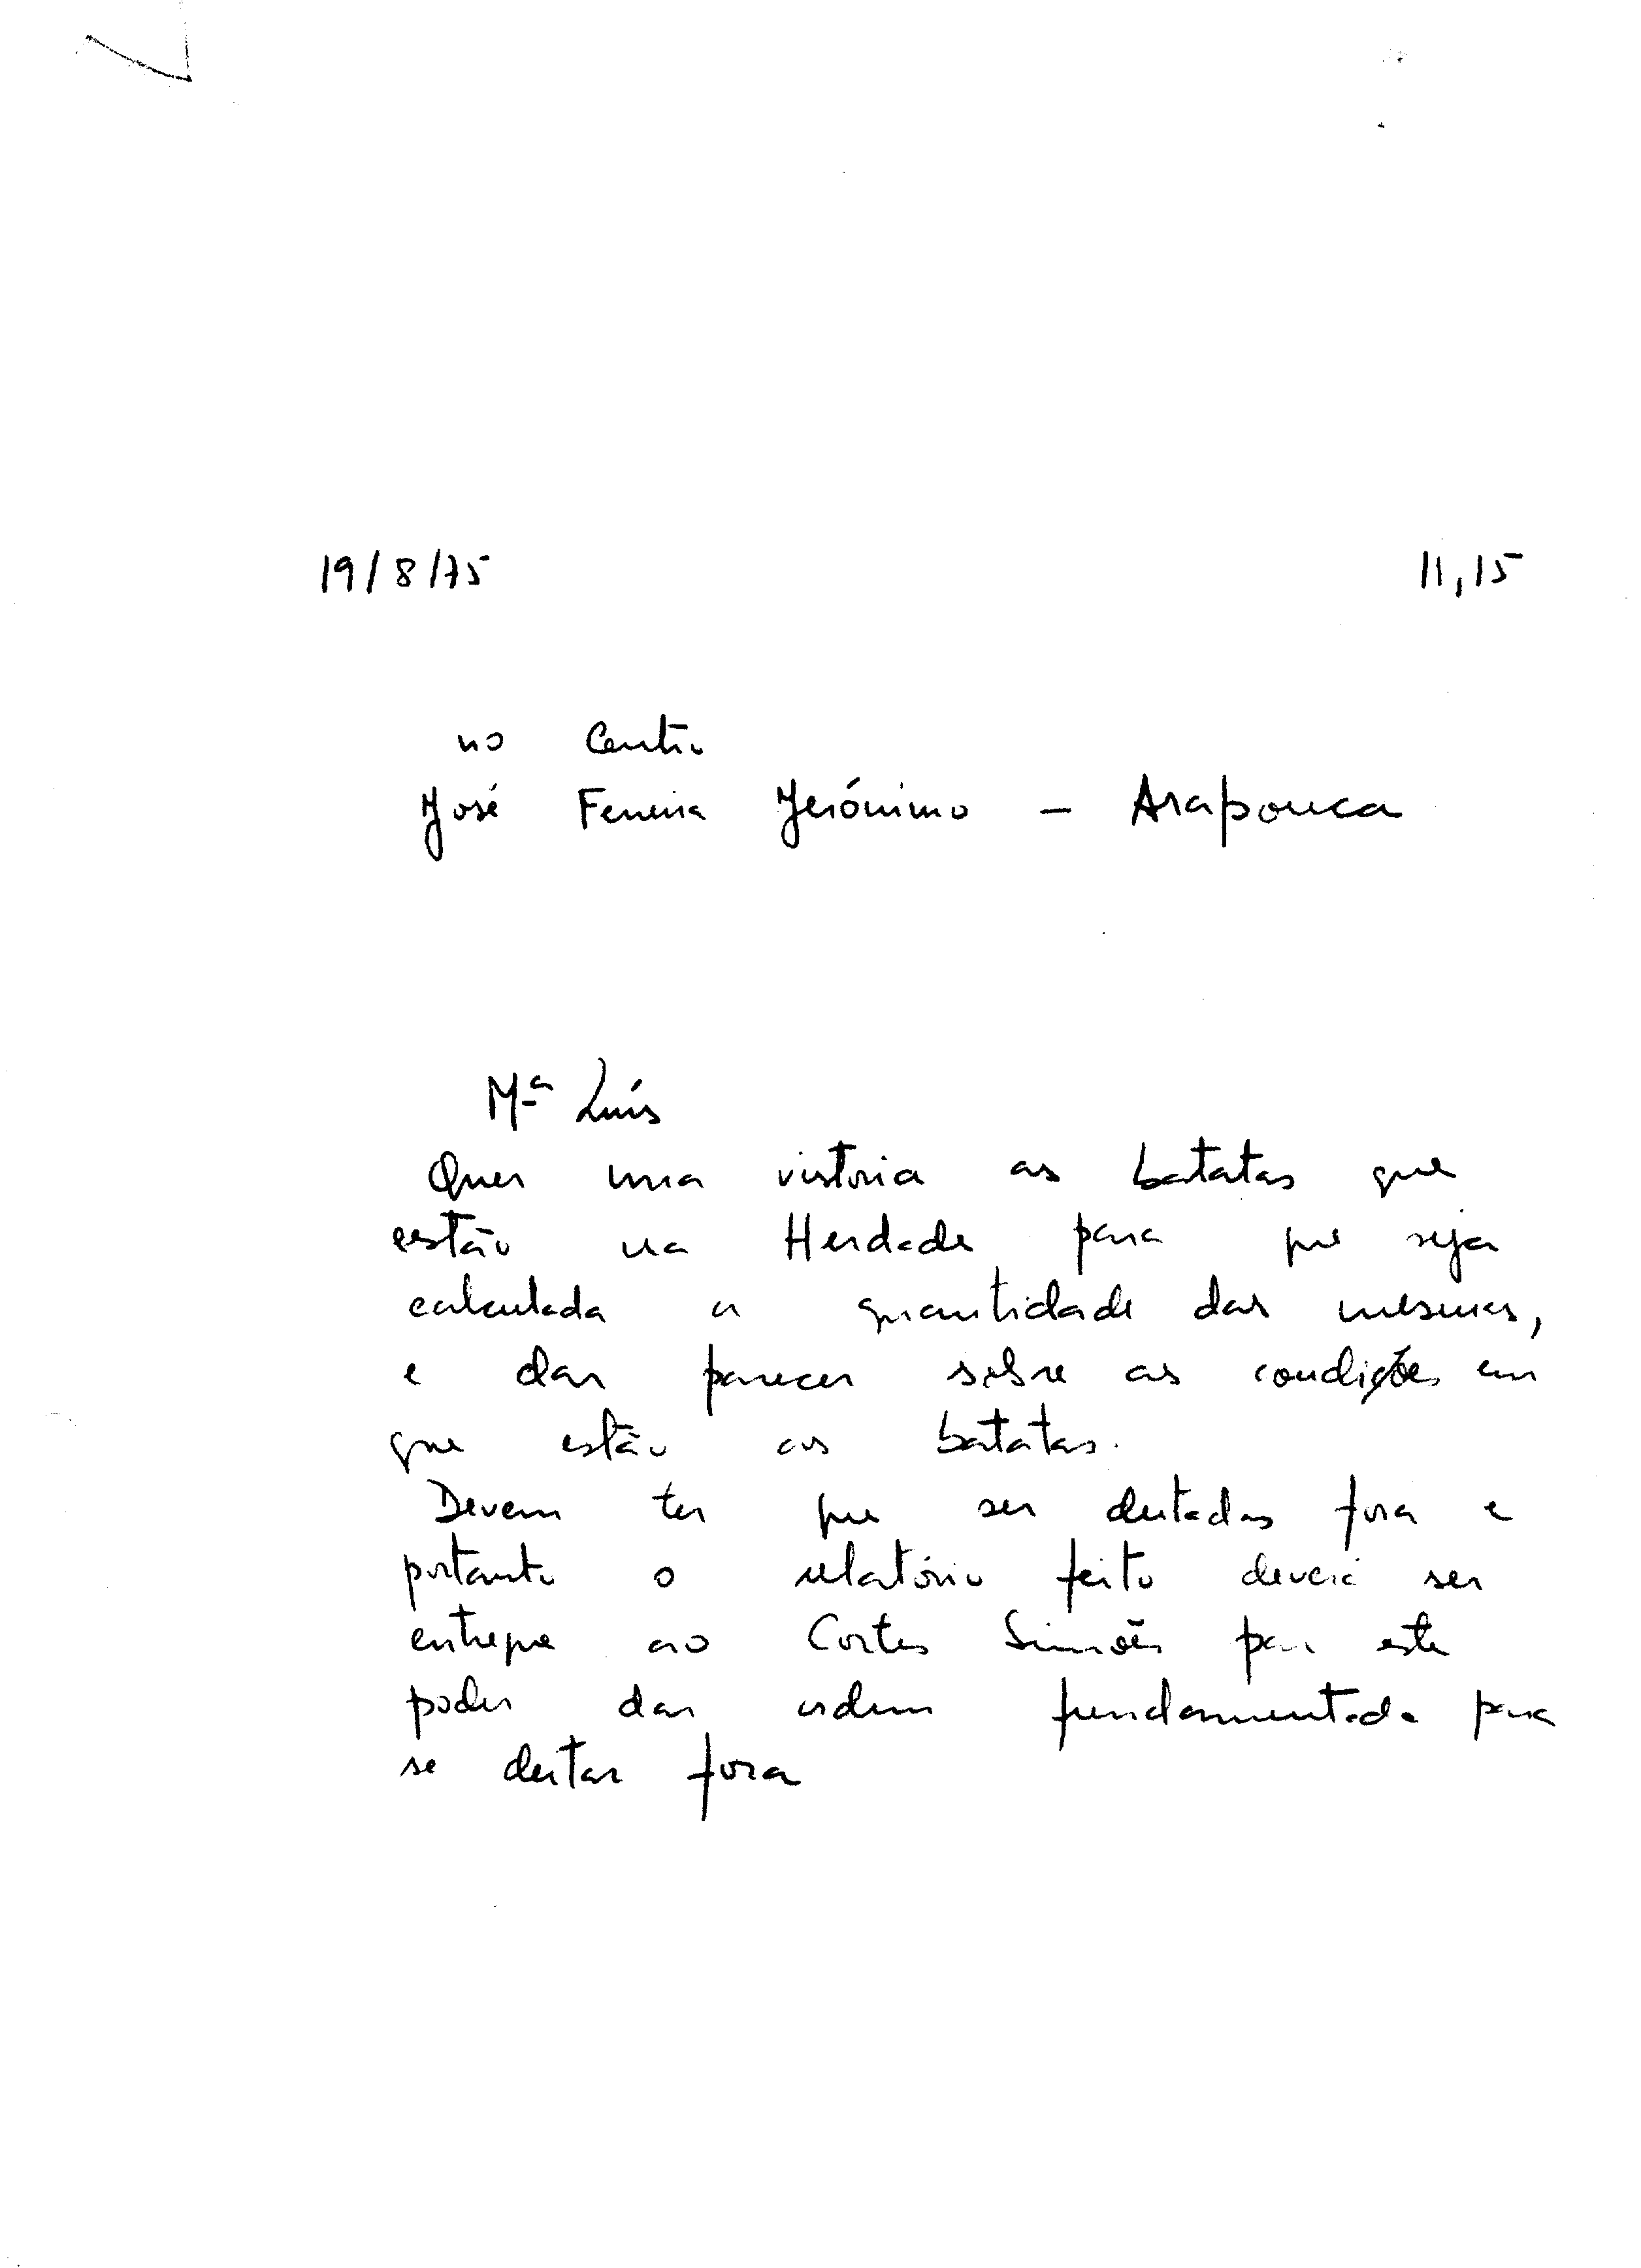 19/8/75 11,15
no Centro
José Ferreira Jerónimo - Arapouca
Mª Luís
Quer uma vistoria as batatas que
estão na Herdade para que seja
calculada a quantidade das mesmas,
e dar parecer sobre as condições em
que estão as batatas.
Devem ter que ser deitadas fora e
portanto o relatório feito deverá ser
entregue ao Cortes Simões para este
poder dar ordem fundamentada para
se deitar fora